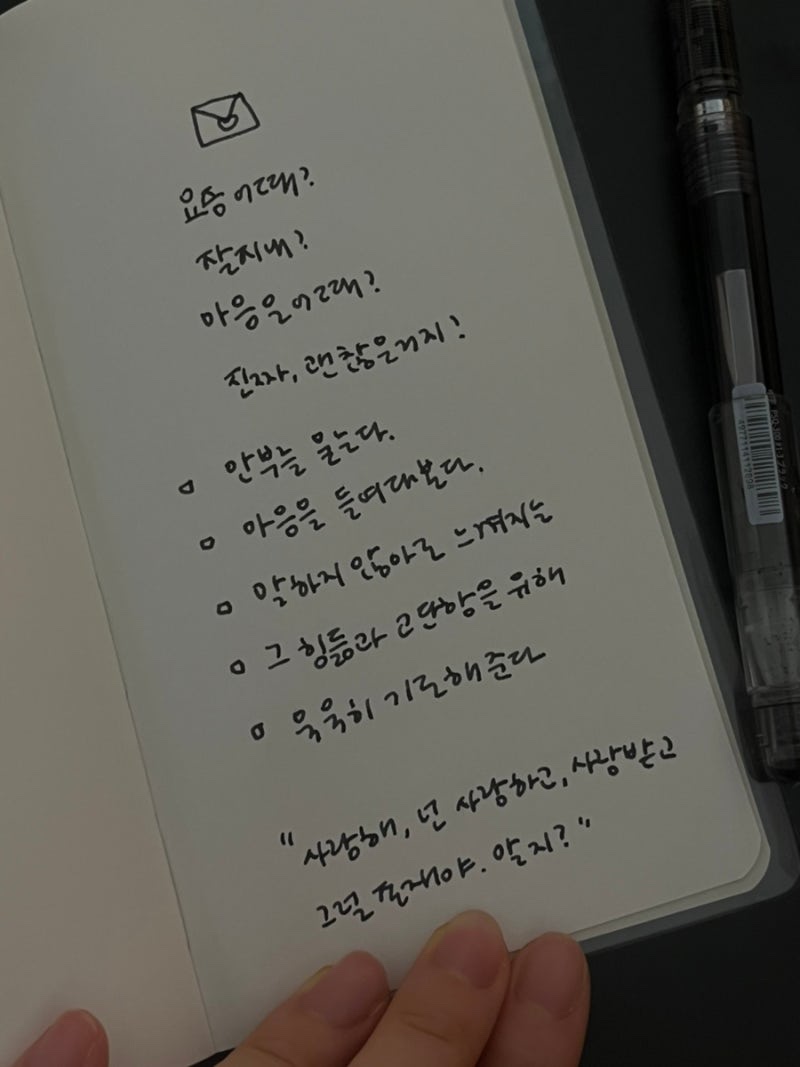 요즘 어때?
잘지내?
마음은 어때?
진짜, 괜찮은거지?
안부를 묻는다.
마음을 들여다본다.
말하지 않아도 느껴지는
그 힘듦과 고단함을 위해
묵묵히 기도해준다
"사랑해, 넌 사랑하고, 사랑받고
그럴 존재야. 알지?"
4977114112898